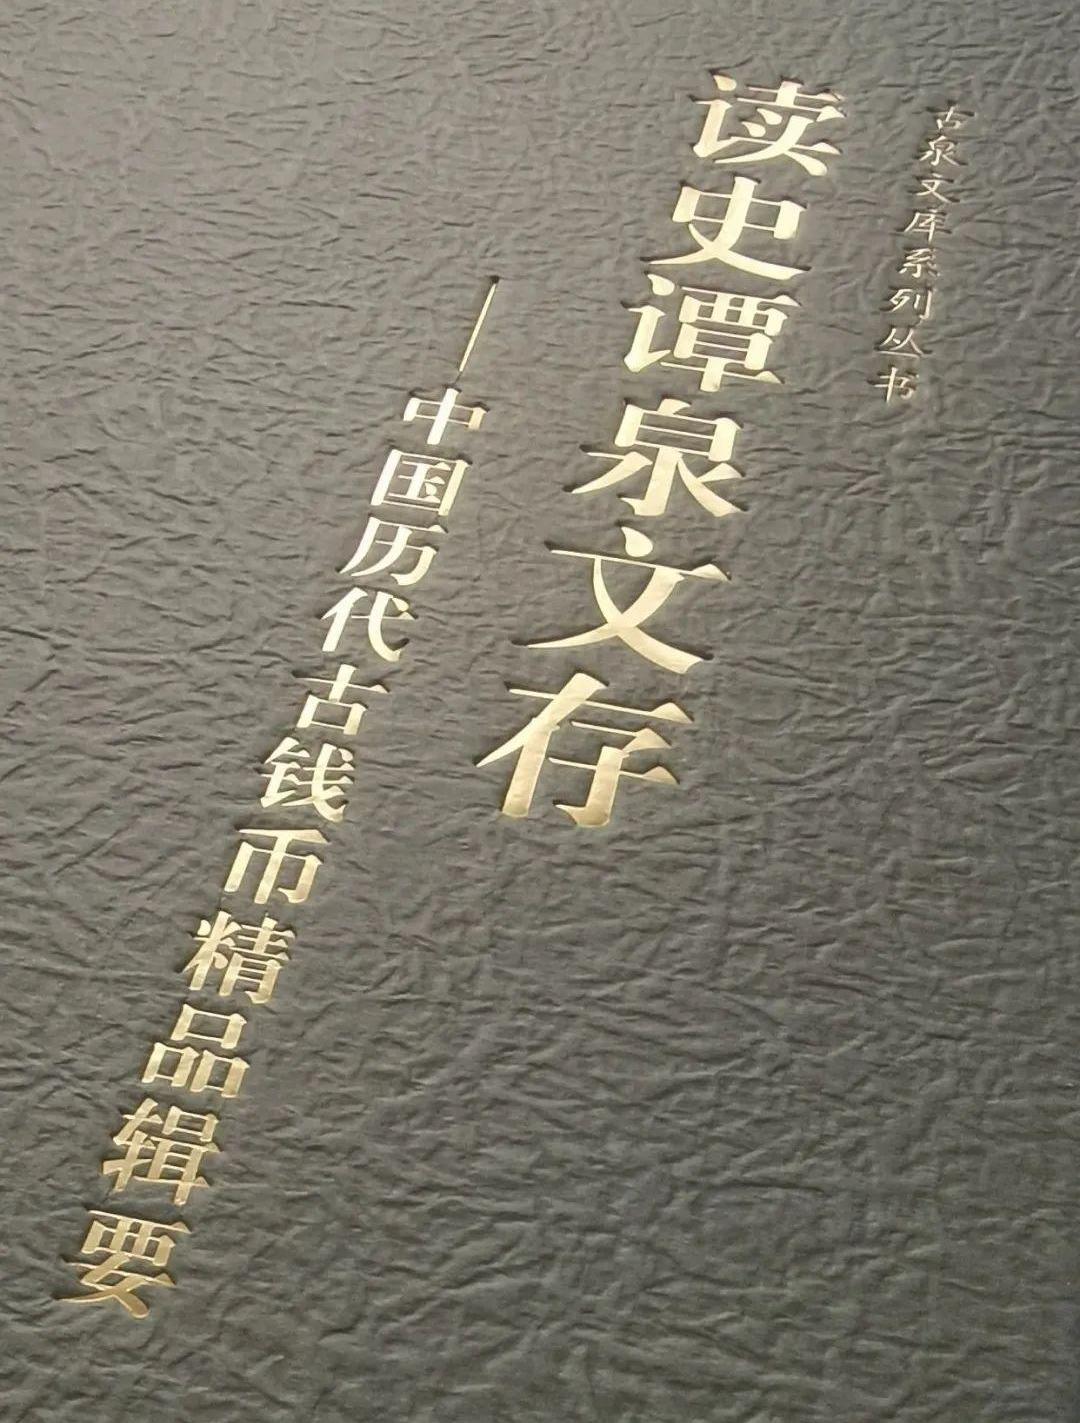 古泉文库系列丛书
读史谭泉文存
——中国历代古钱币精品辑要